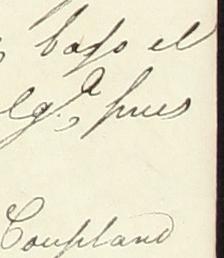 bajo el
lg.ª, pues
Coupland